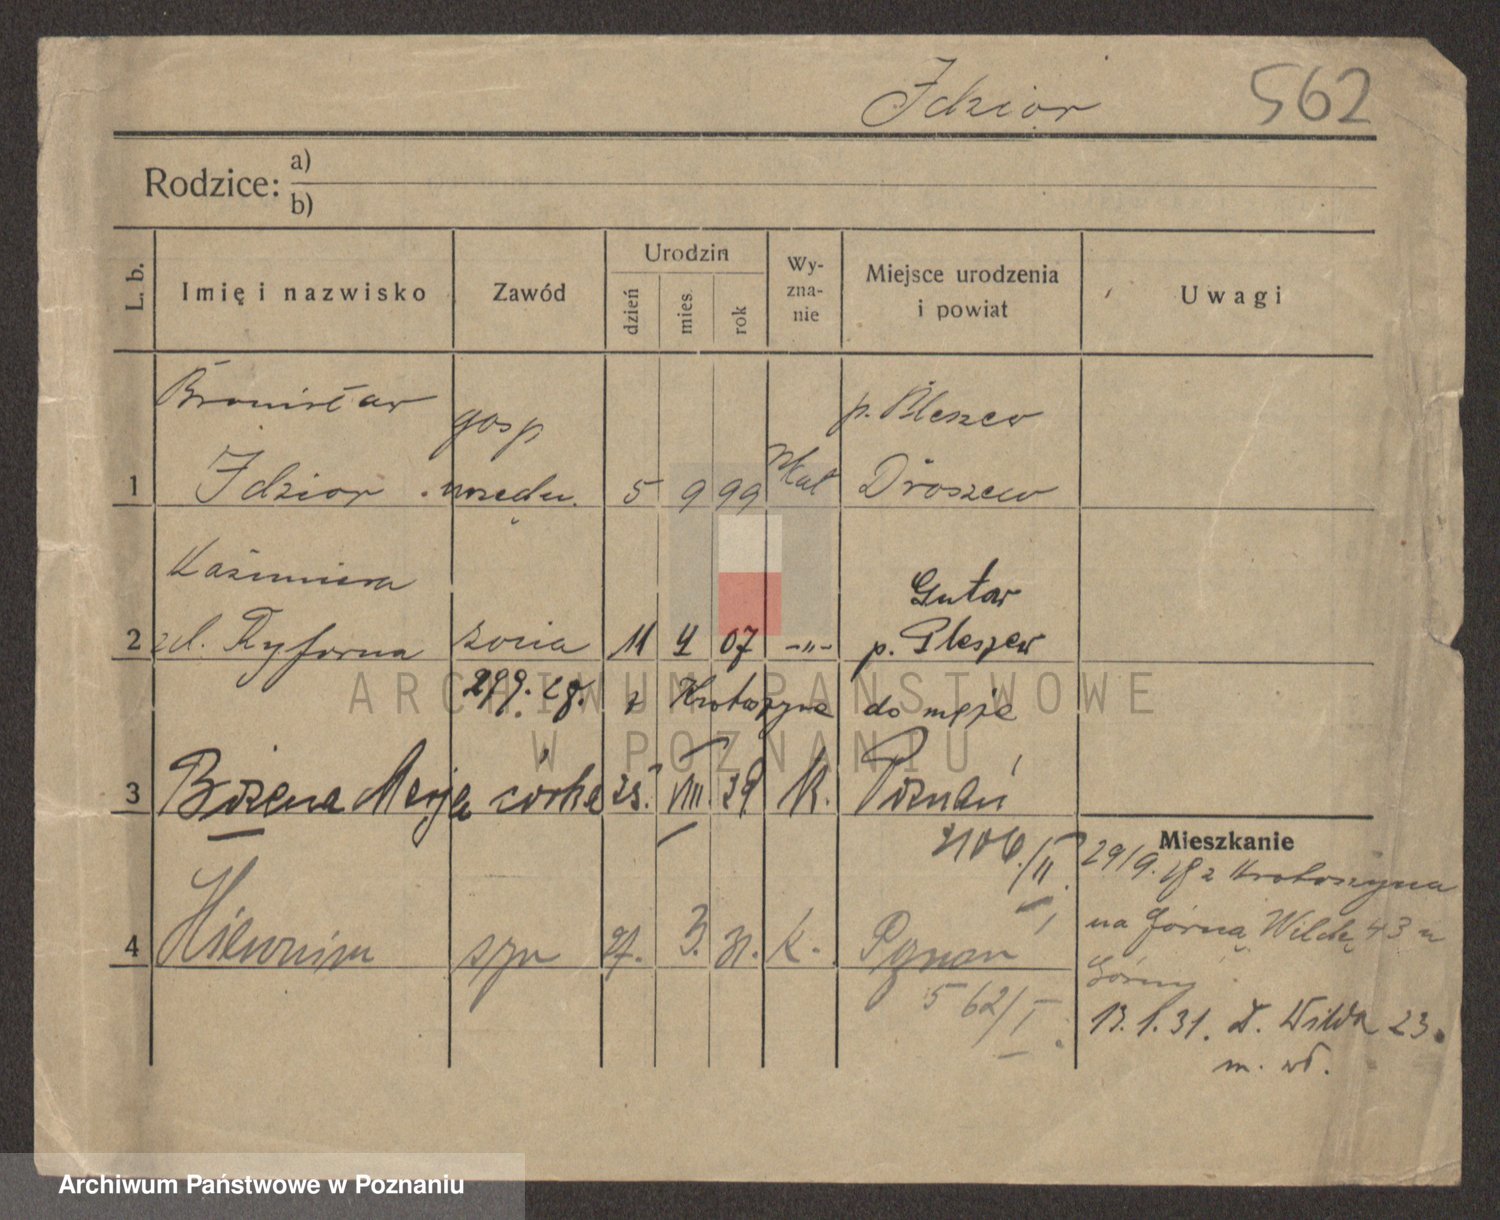 Idzior 562
Rodzice: a)
b)
L. b. Imię i nazwisko Zawód Urodzin dzień mies. rok Wy-zna-nie Miejsce urodzenia i powiat Uwagi
Bronisław gosp p. Pleszew
1 Idzior 5 9 99 kat Droszew
Kazimiera Gutow
2 Ryforna żona 11 9 07 -„- p. Pleszew
299. 28. z Krotoszyna do męża
3 Bożena Marja córka 25. VIII. 29 k. Poznań
2106/II.
Mieszkanie
29/9. 28 z Krotoszyna
na Górną Wildę 43 u
4 Hieronim syn 27. 3. 31. k. Poznań
562/I.
13. 1. 31. D. Wilda 23.
m. wł.
ARCHIWUM PAŃSTWOWE
W POZNANIU
Archiwum Państwowe w Poznaniu